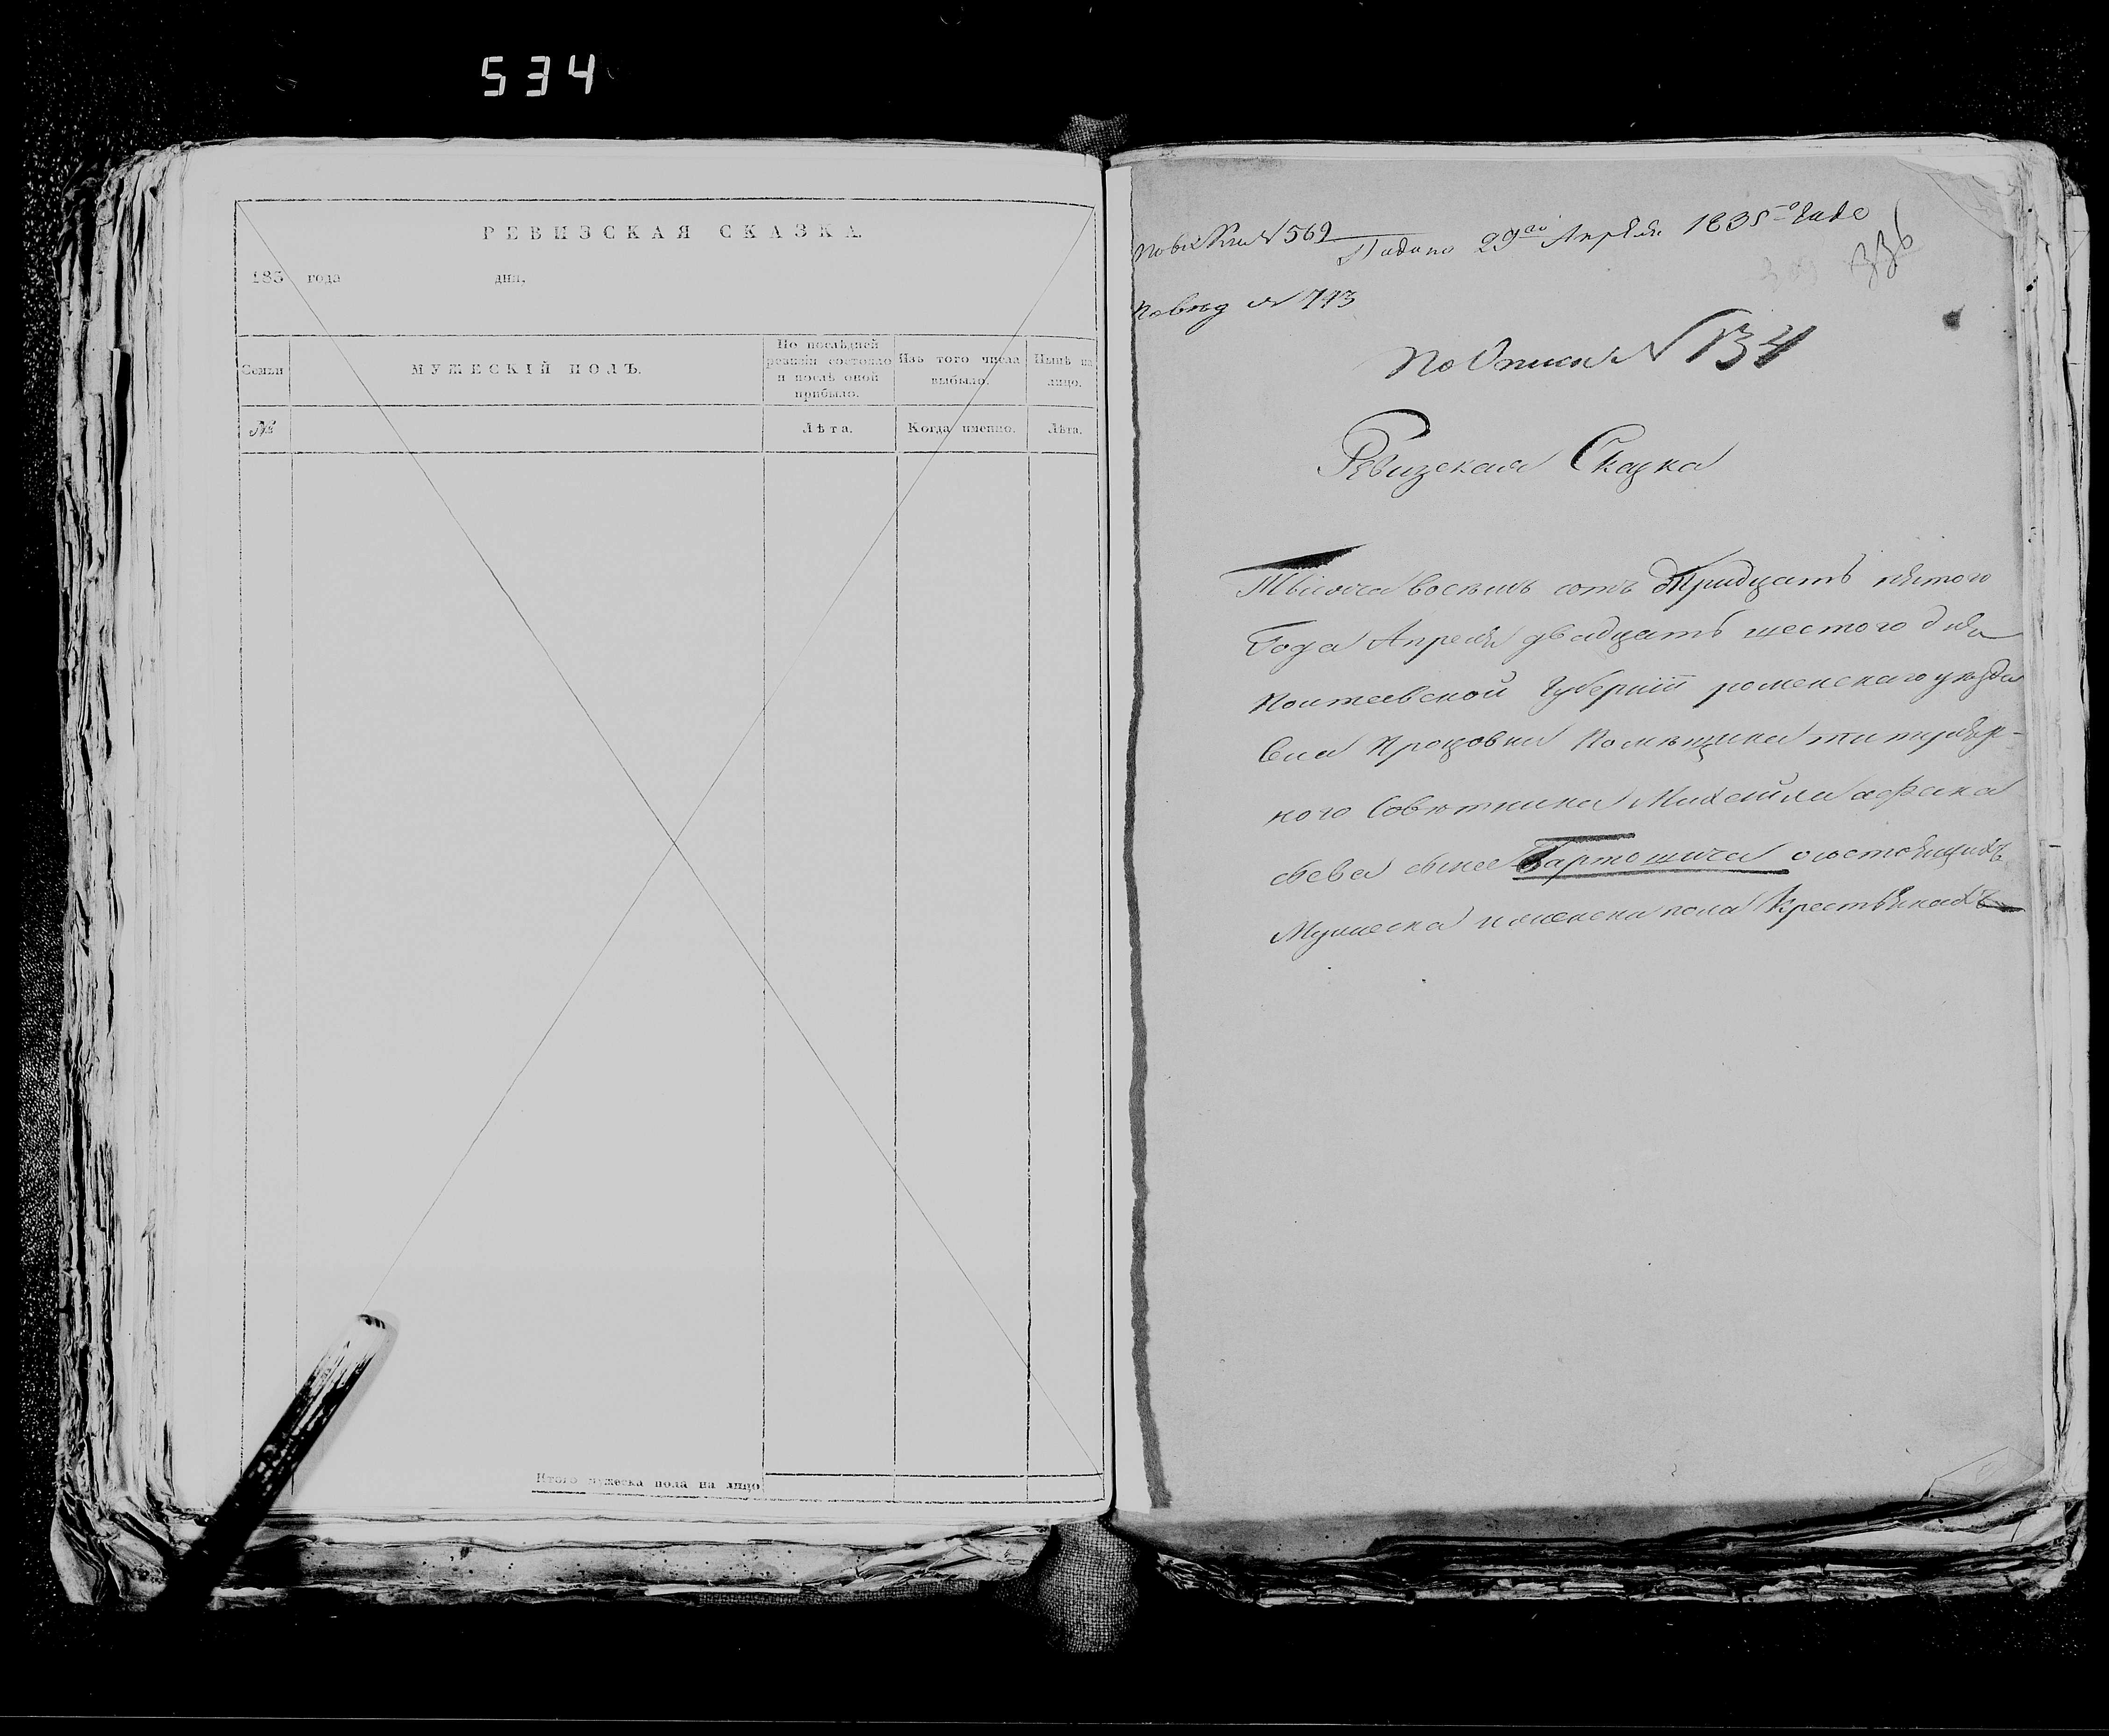 534
РЕВИЗСКАЯ СКАЗКА.
183 года дня.
Семьи
МУЖЕСКІЙ ПОЛЪ.
По послѣдней
ревизіи состояло
и послѣ оной
прибыло.
Изъ того числа
выбыло.
Нынѣ на
лицо.
№
Лѣта.
Когда именно.
Лѣта.
Итого мужеска пола на лицо
N 569 Подано 29го Апреля 1835го Года
336
N 743
По Описи N 134
Ревизская Сказка
Тысяча восемь сотъ Тридцать пятого
Года Апреля двадцать шестого дня
Полтавской Губерніи роменского уезда
Села Процовки Помещика титуляр-
ного Советника Михайла афана
сьева сына Гартошича о состоящихъ
Мужеска и женска пола Крестьянахъ